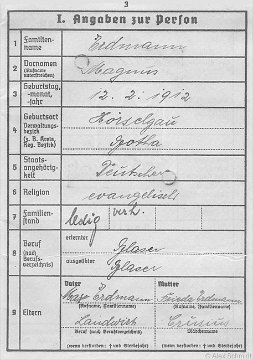 3
I. Angaben zur Person
1 Familien-
name
Erdmann
2 Vornamen
(Rufname
unterstreichen)
Magnus
3 Geburtstag,
-monat,
-jahr
12. 2. 1912
4 Geburtsort
Verwaltungs-
bezirk
(z. B. Kreis,
Reg.-Bezirk)
Hörselgau
Gotha
5 Staats-
angehörig-
keit
Deutscher
6 Religion
evangelisch
7 Familien-
stand
ledig verh.
8 Beruf
(nach
Berufs-
verzeichnis)
erlernter
Glaser
ausgeübter
Glaser
9 Eltern
Vater
Erdmann
(Rufname, Familienname)
Landwirt
(Beruf nach Berufsverzeichnis)
(wenn verstorben: † und Sterbejahr)
Mutter
Frieda Erdmann
(Rufname, Familienname)
(wenn verstorben: † und Sterbejahr)